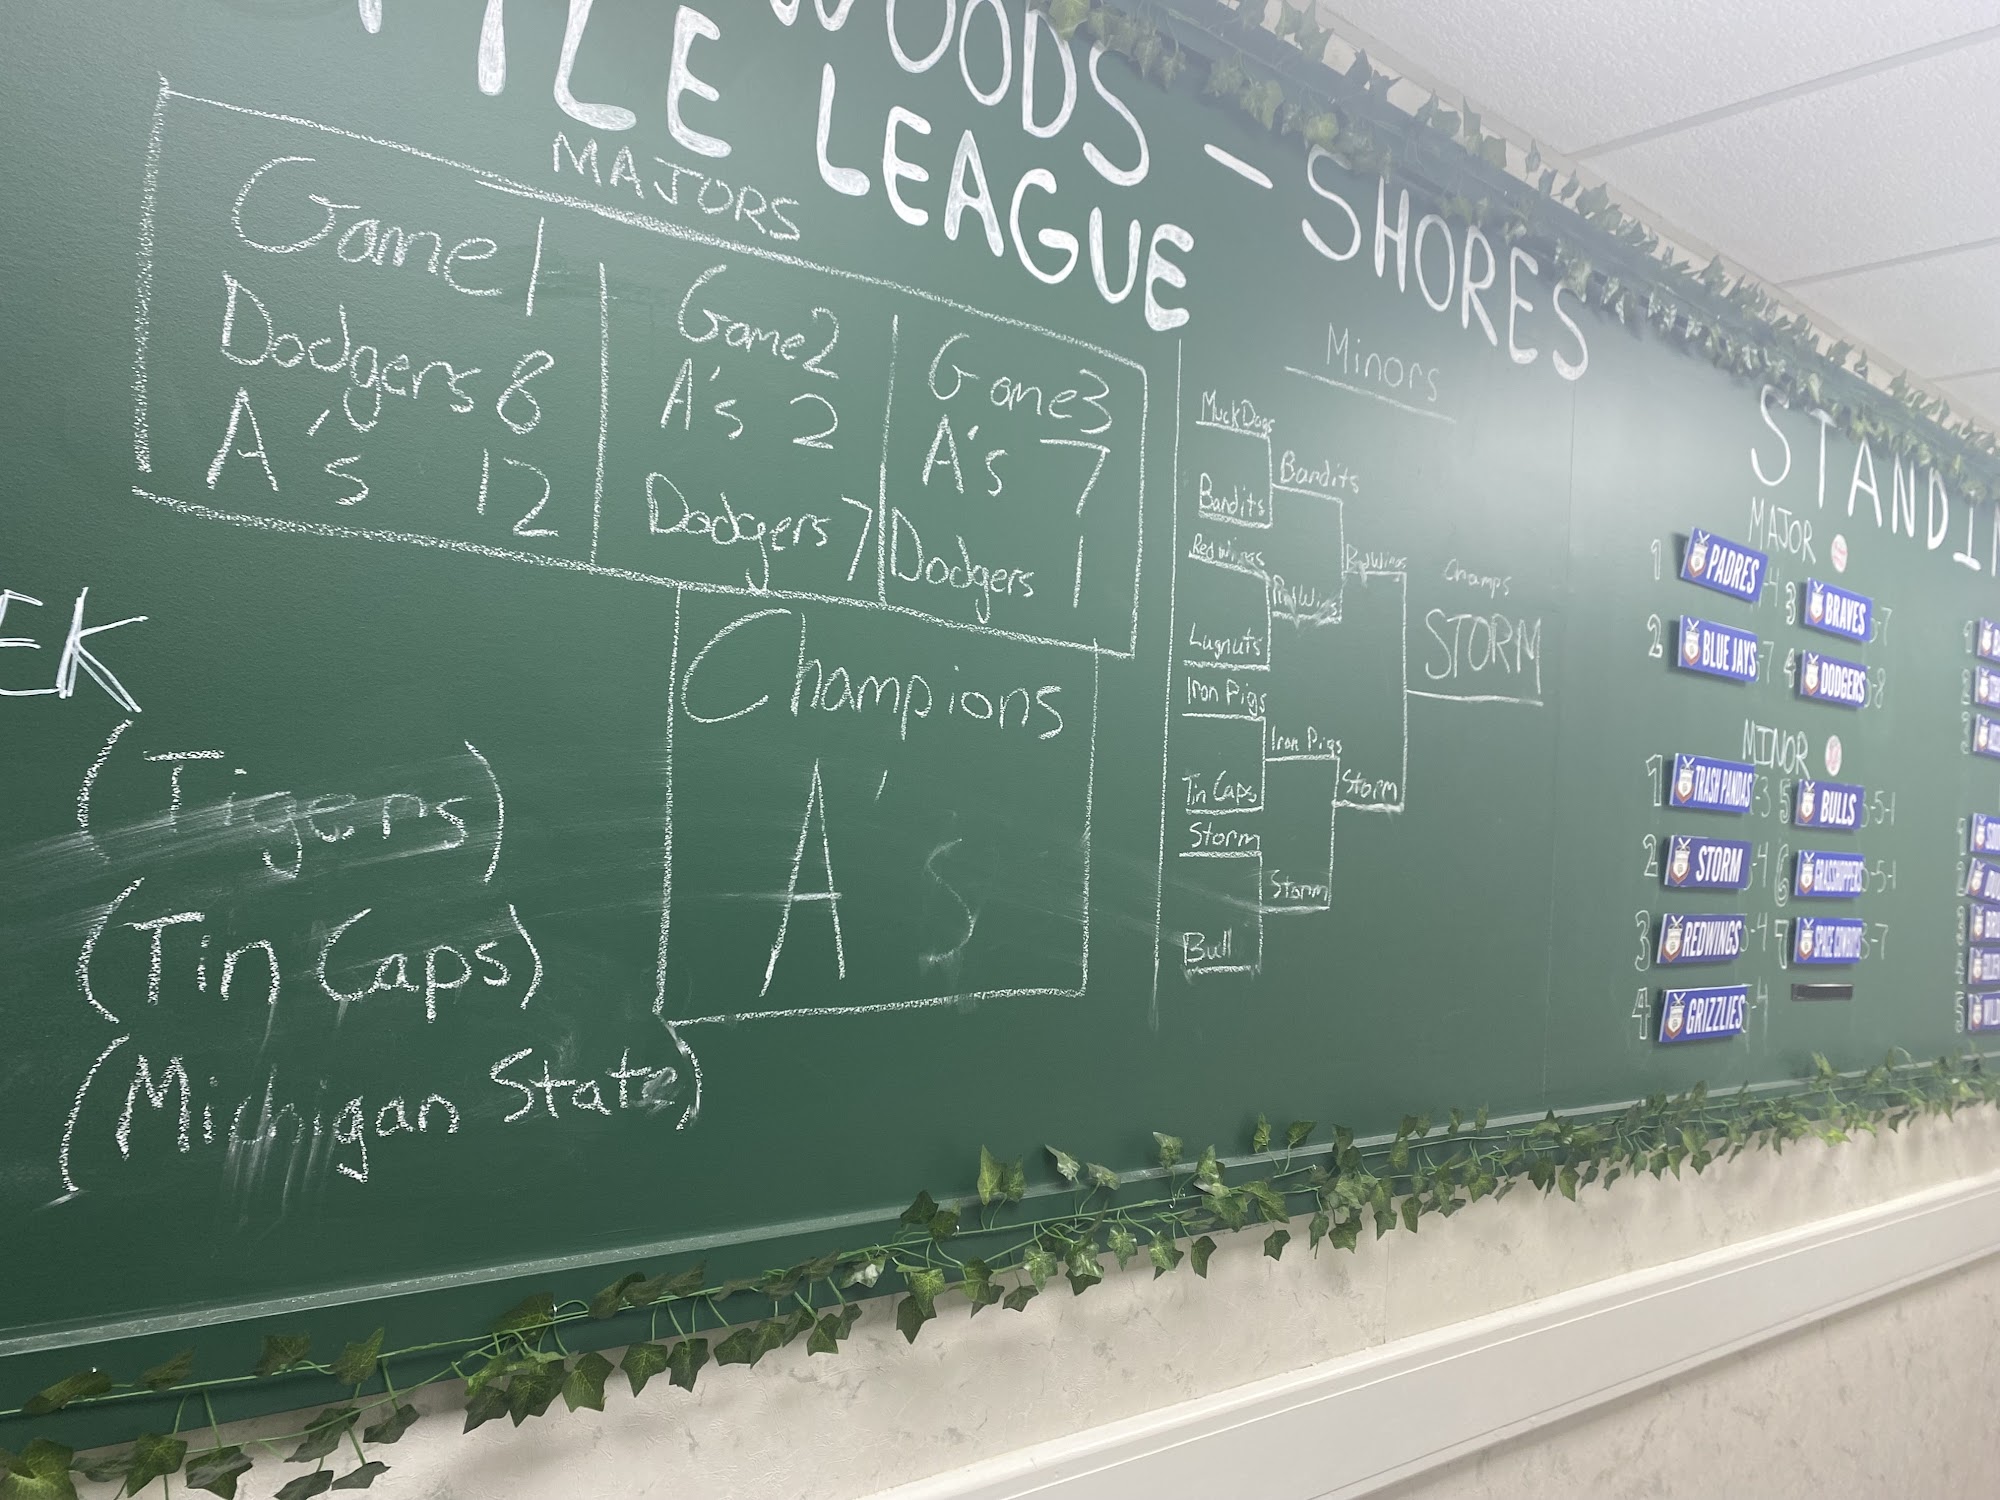 WOODS - SHORES
LEAGUE
MAJORS
Game 1
Dodgers 8
A's 12
Game 2
A's 2
Dodgers 7
Game 3
A's 7
Dodgers 1
Champions
A's
EK
(Tigers)
(Tin Caps)
(Michigan State)
Minors
MuckDogs
Bandits
Redwings
Lugnuts
Iron Pigs
Tin Caps
Storm
Bull
Bandits
Iron Pigs
Storm
Storm
Champs
STORM
STANDIN
MAJOR
1 PADRES -4
2 BLUE JAYS -7
3 BRAVES -7
4 DODGERS -8
MINOR
1 TRASH PANDAS -3
2 STORM -4
3 REDWINGS -4
4 GRIZZLIES -4
5 BULLS -5-1
6 GRASSHOPPERS -5-1
7 SPACE COWBOYS -7